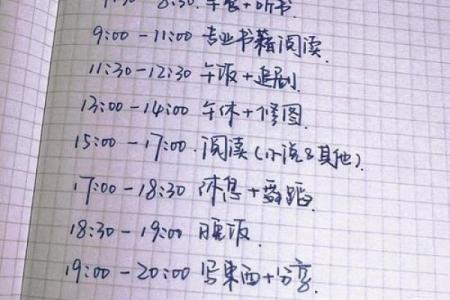 8:30 早餐+听书
9:00-11:00 专业书籍阅读.
11:30-12:30 午饭+追剧
13:00-14:00 午休+修图.
15:00-17:00.阅读(小说&其他).
17:00-18:30 休息+舞蹈.
18:30-19:00 晚饭.
19:00-20:00 写东西+分享.